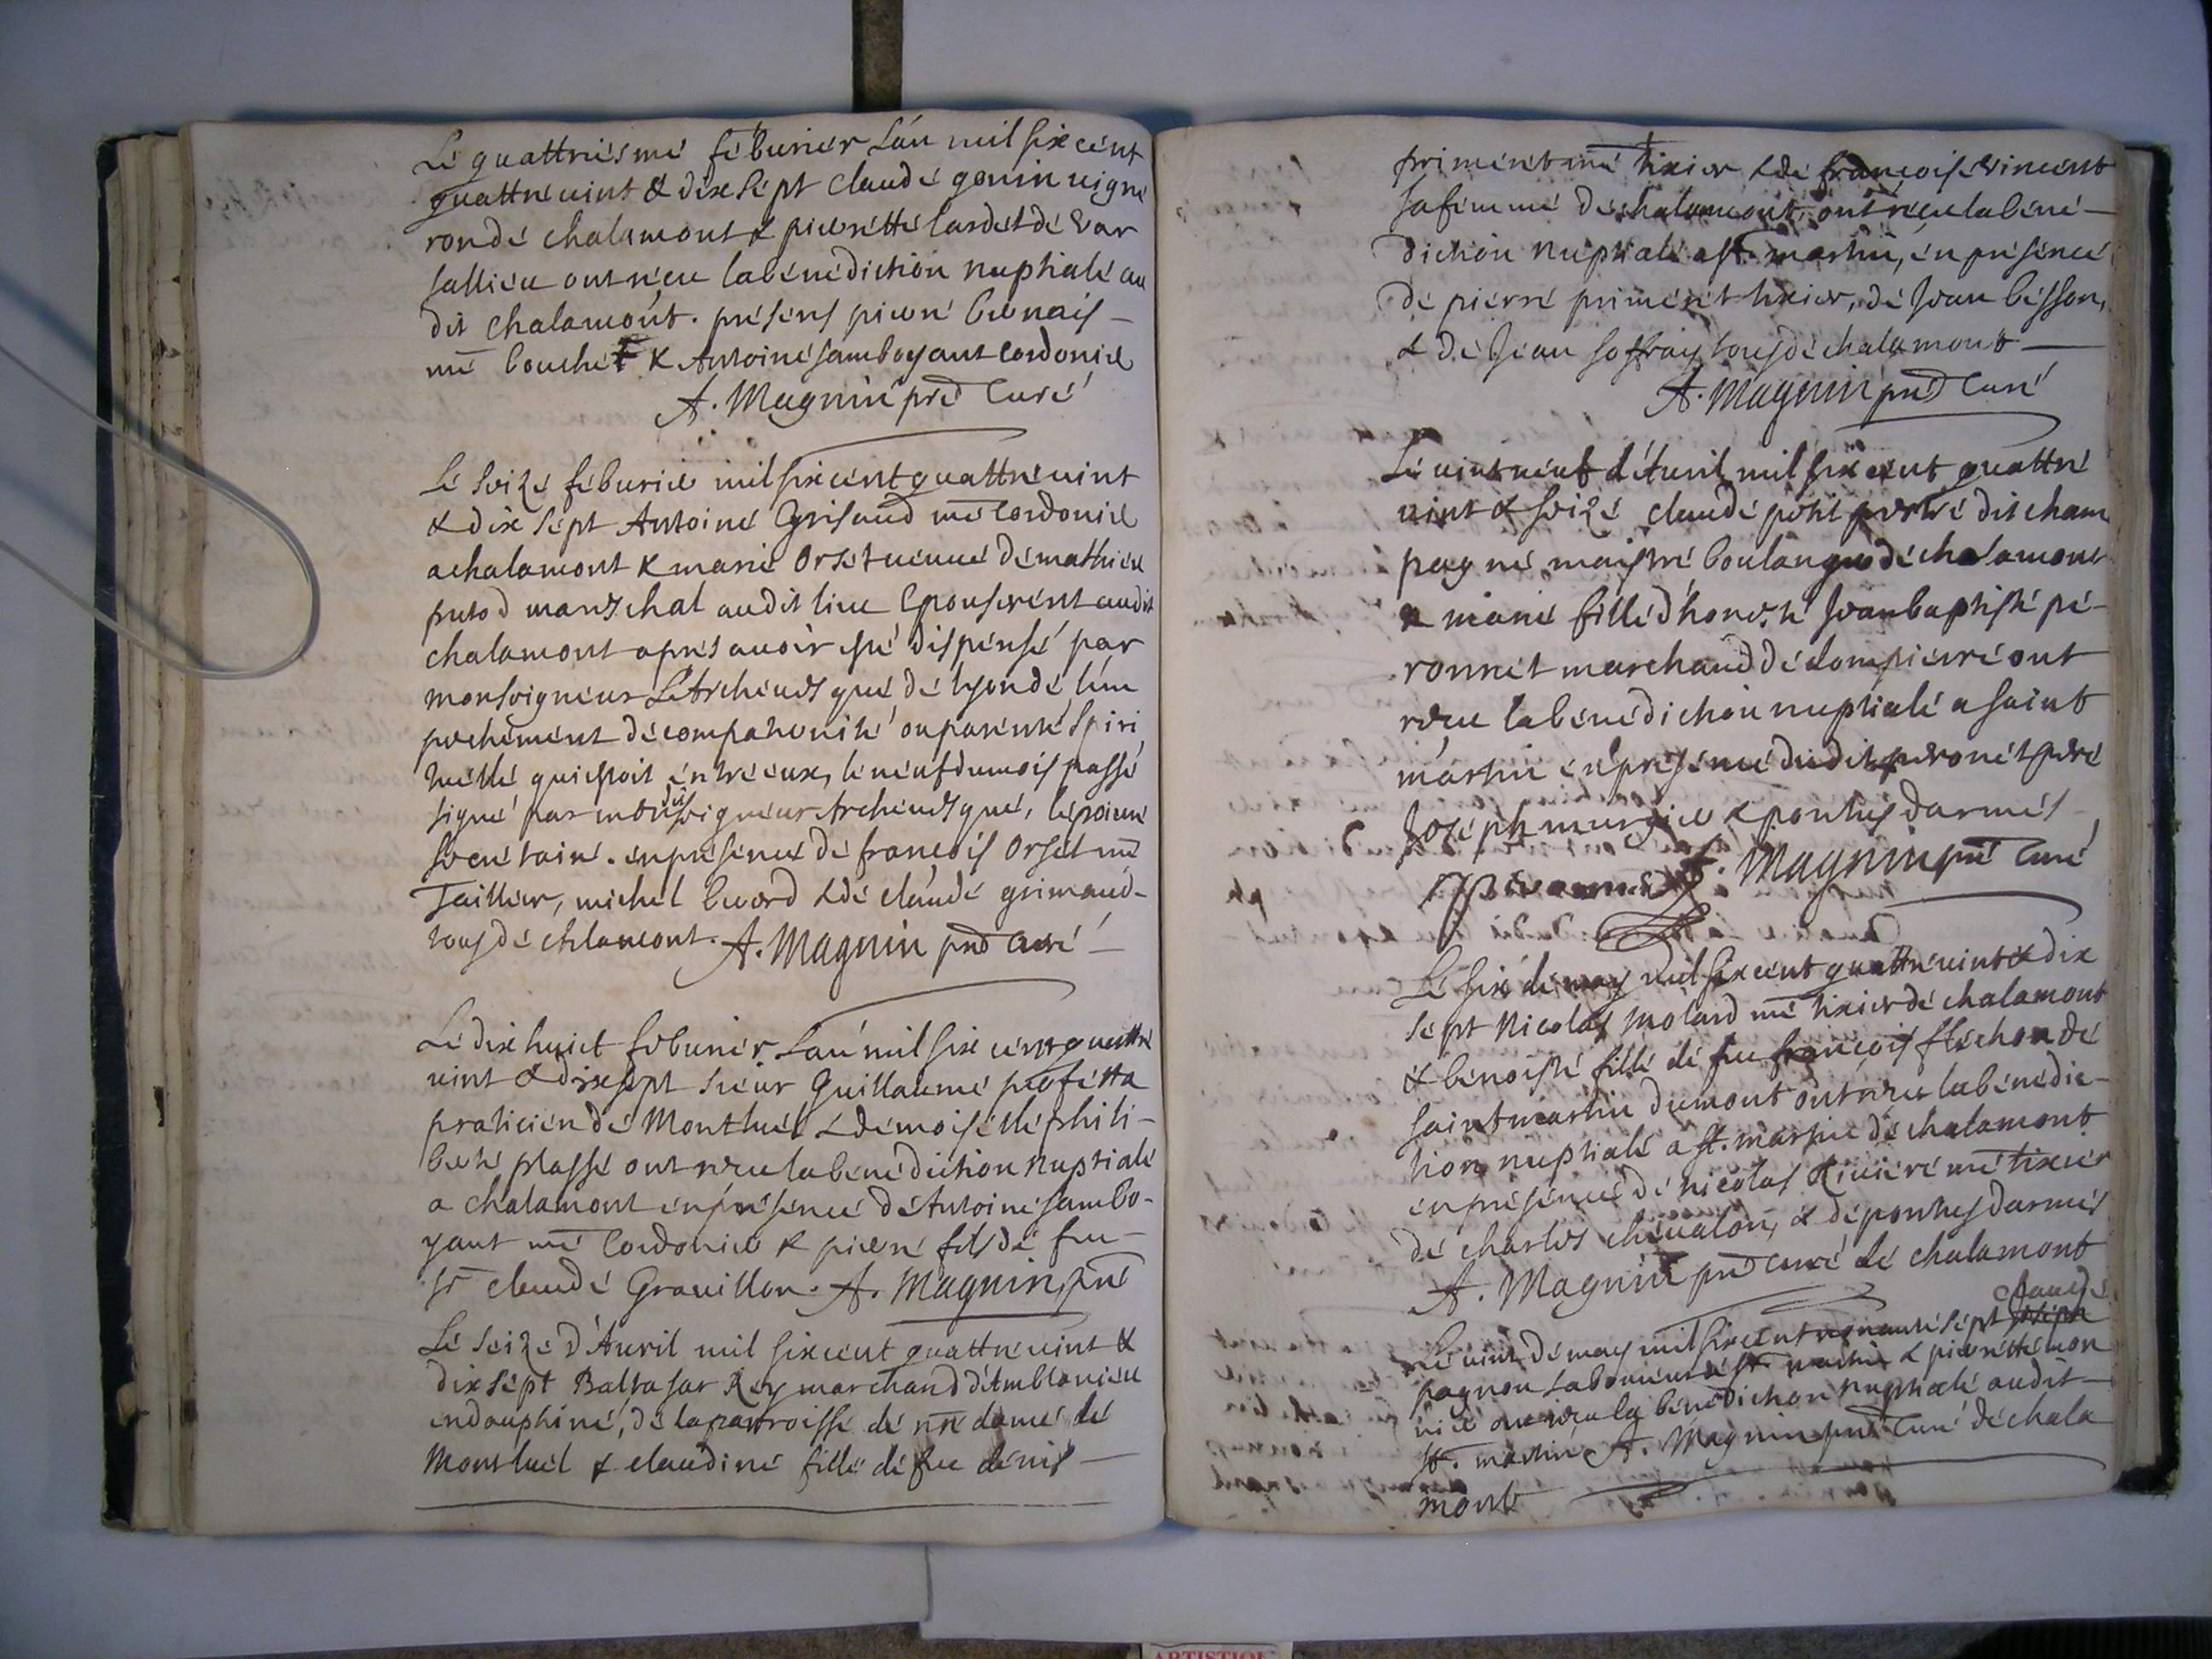 Le quattriesme feburier L'an mil six cent
quattre uint & dix sept claude gonin uigne
ron de chalamont & pierrette lardet de Var
sallieu ont receu la benediction nuptiale au
dit chalamont. presens pierre
me bouchet & Antoine samboyant cordonie
A. Magnin pre Curé
Le seize feburie mil six cent quattre uint
& dix sept Antoine Grisaud me Cordonie
a chalamont & marie Orset ueuue de mathieu
putod mareschal audit lieu Epouserent audit
chalamont apres auoir esté dispensé par
monseigneur L'Archeuesque de lyon de l'em
pechement de compaternité ou parenté Spiri
tuelle qui estoit entre eux, le neuf du mois passé
signé par monseigneur Archeuesque,
secretaire. en presence de francois Orset me
Taillier, michel & de claude grimaud
tous de chlamont. A. Magnin pre Curé
Le dix huict feburier L'an mil six cent quattre
uint & dix sept sieur Guillaume profetta
praticien de Montluel & demoiselle phili-
berte plasse ont receu la benediction nuptiale
a chalamont en presence de Antoine sambo-
yant me Cordonie & pierre fils de feu
sr claude Grauillon. A. Magnin pre
Le seize d'Auril mil six cent quattre uint &
dix sept Baltasar Rey marchand d'Amblanieu
en dauphiné, de la parroisse de nre dame de
Montluel & claudine fille de feu denis
priment me tixier & de francoise Vincent
sa femme de chalamont, ont receu la bene-
diction nuptiale a st. martin, en presence
de pierre priment tixier, de Jean besson,
& de Jean soffray tous de chalamont
A. Magnin pre Curé
Le uint neuf d'Auril mil six cent quattre
uint & seize claude petit dit cham
pagne maistre boulanger de chalamont
& marie fille d'honeste Jean baptiste pe-
ronnet marchand de dompierre ont
receu la benediction nuptiale a saint
martin en presence dudit peronet pere
Joseph & ponthus darmes
A. Magnin pre Curé
Le six de may mil six cent quattre uint & dix
sept Nicolas Molard me tixier de chalamont
& benoiste fille de feu francois flechon de
saint martin dumont ont receu la benedic-
tion nuptiale a st. martin de chalamont
en presence de nicolas Riuiere me tixier
de charles cheualon, & de ponthus darmes
A. Magnin pre curé de chalamont
claude
Le uint de may mil six cent nonante sept joseph
pagnon Laboureur de st. martin & pierrette mon
nier ont receu la benediction nuptiale audit
st. martin A. Magnin pre Curé de chala
mont
ARTISTIQUE